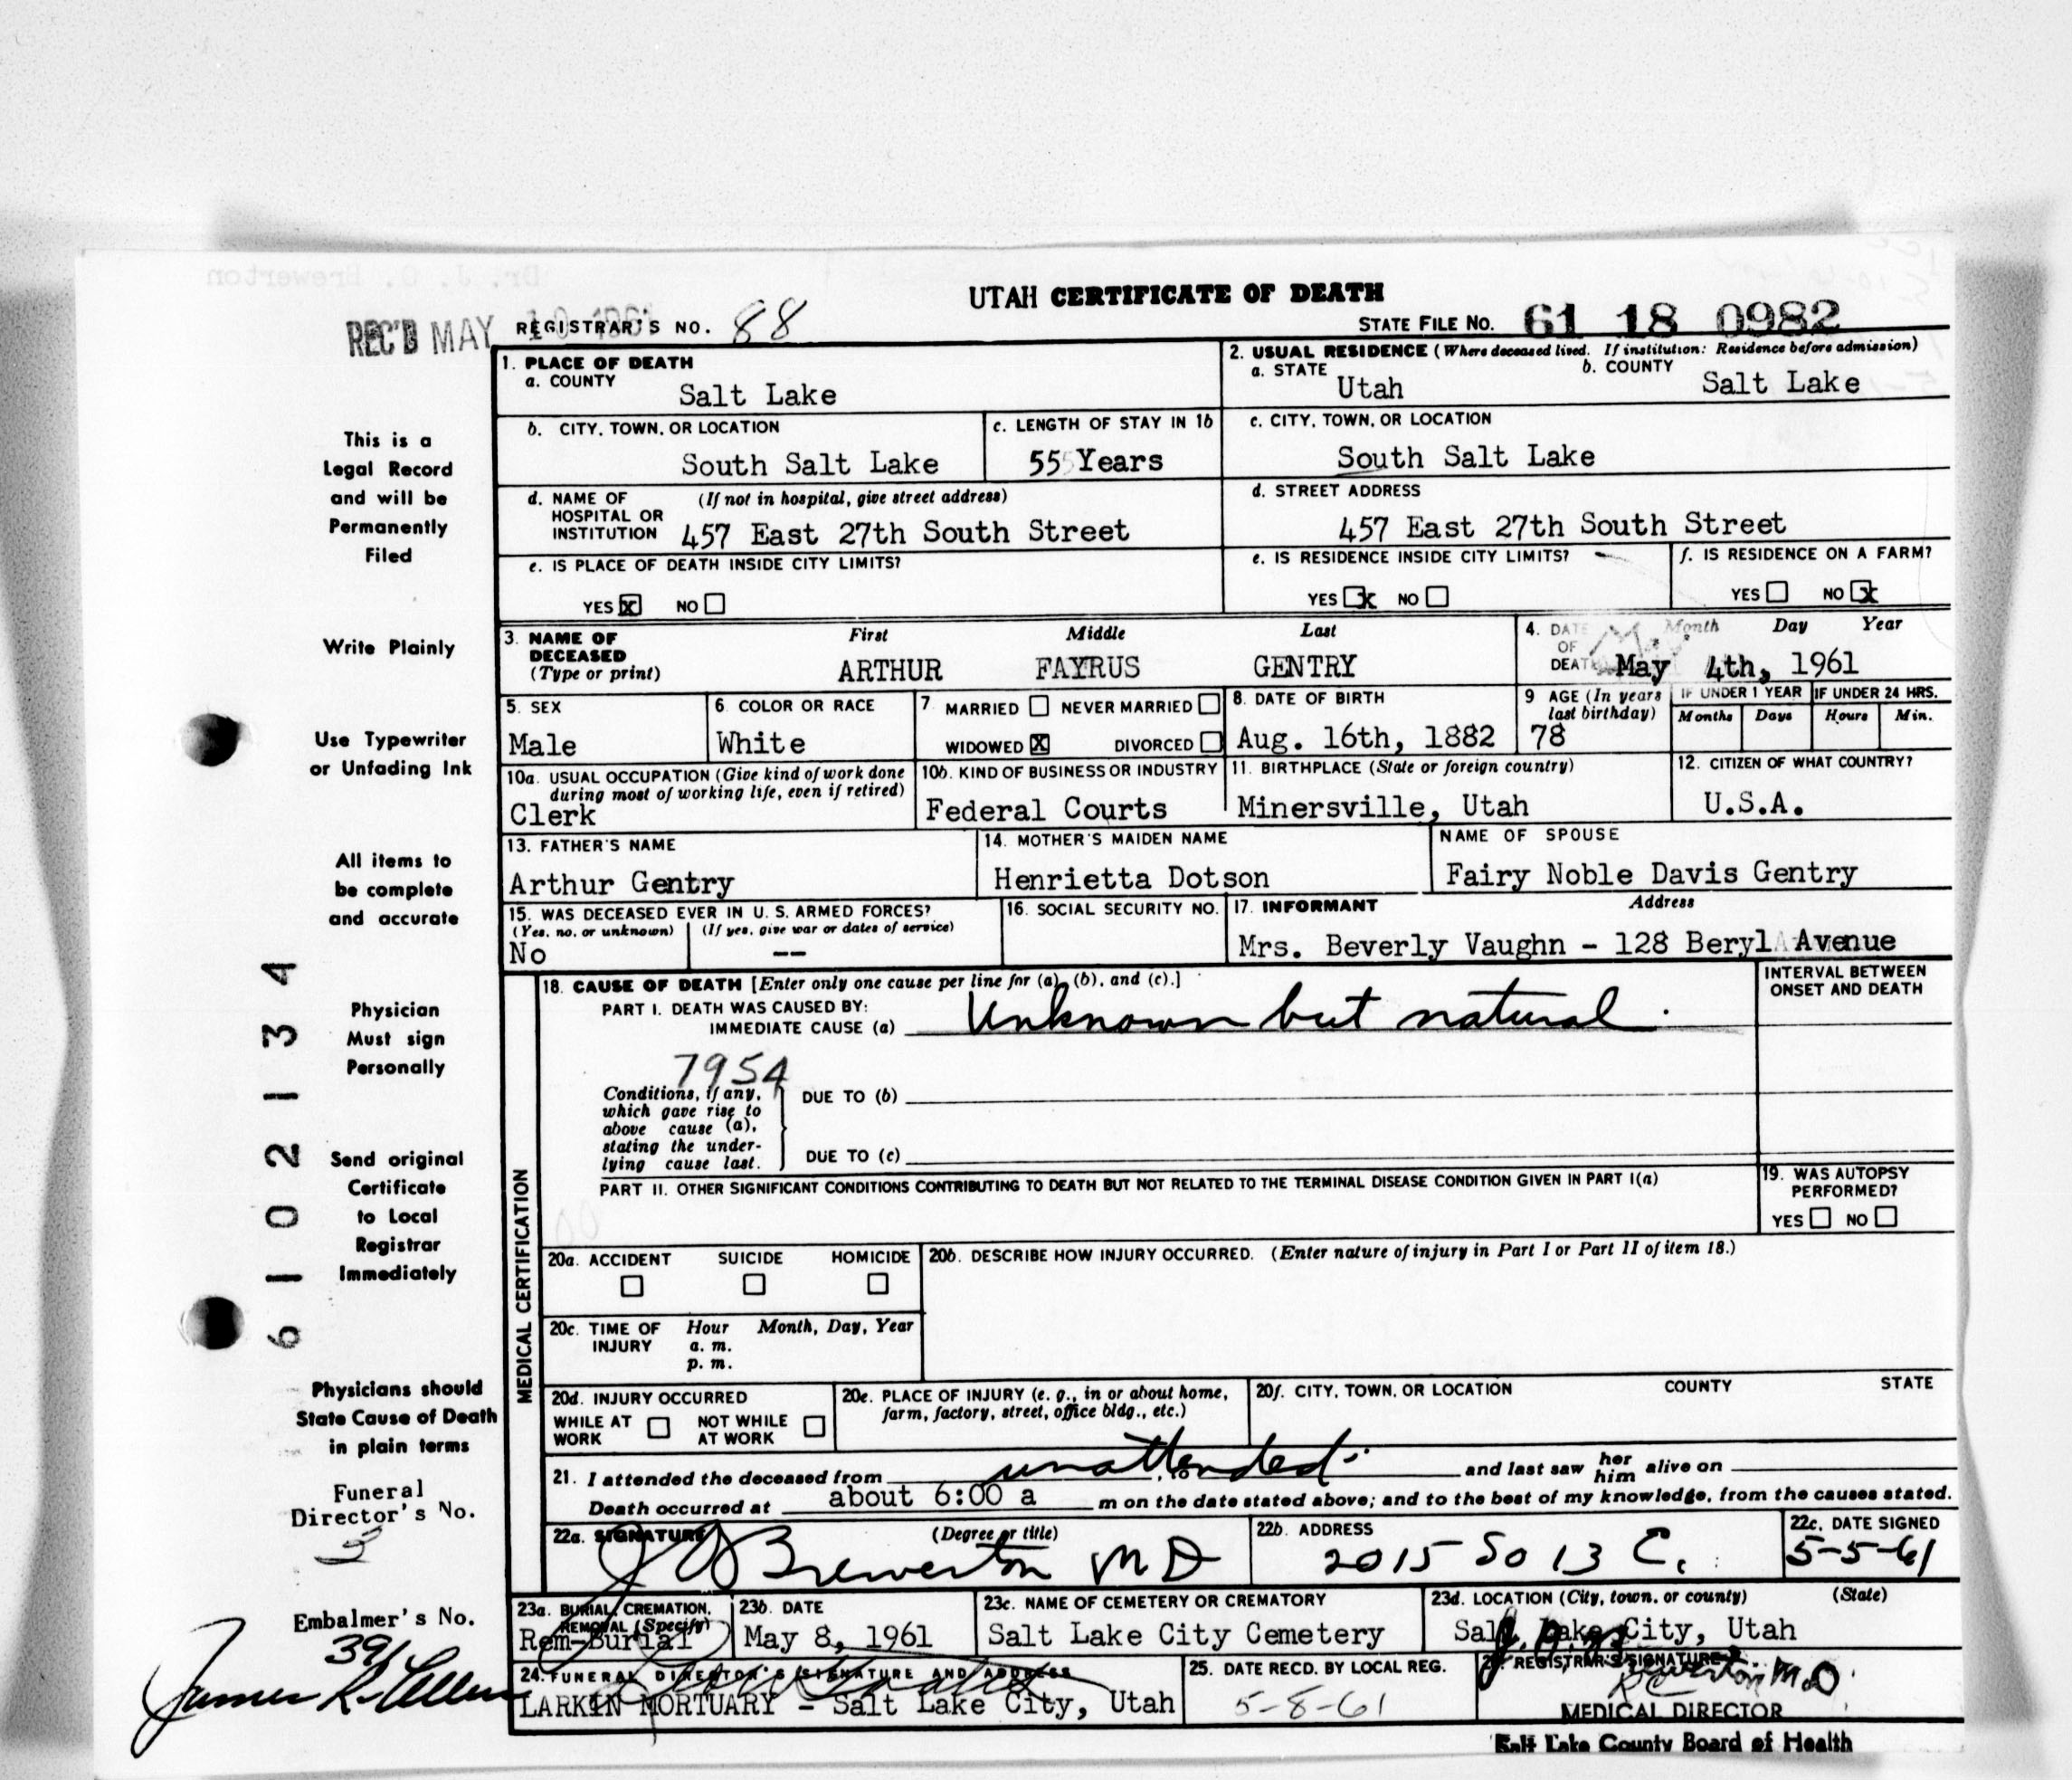 UTAH CERTIFICATE OF DEATH
REC'D MAY 10 1961 REGISTRAR'S NO. 88 STATE FILE No. 61 18 0982
1. PLACE OF DEATH
a. COUNTY Salt Lake
2. USUAL RESIDENCE (Where deceased lived. If institution: Residence before admission)
a. STATE Utah b. COUNTY Salt Lake
b. CITY, TOWN, OR LOCATION South Salt Lake
c. LENGTH OF STAY IN 1b 55 Years
c. CITY, TOWN, OR LOCATION South Salt Lake
d. NAME OF HOSPITAL OR INSTITUTION (If not in hospital, give street address) 457 East 27th South Street
d. STREET ADDRESS 457 East 27th South Street
e. IS PLACE OF DEATH INSIDE CITY LIMITS?
YES X NO
e. IS RESIDENCE INSIDE CITY LIMITS?
YES X NO
f. IS RESIDENCE ON A FARM?
YES NO X
3. NAME OF DECEASED (Type or print) First Middle Last
ARTHUR FAYRUS GENTRY
4. DATE OF DEATH Month Day Year
May 4th, 1961
5. SEX Male
6. COLOR OR RACE White
7. MARRIED NEVER MARRIED
WIDOWED X DIVORCED
8. DATE OF BIRTH Aug. 16th, 1882
9 AGE (In years last birthday) 78
IF UNDER 1 YEAR Months Days
IF UNDER 24 HRS. Hours Min.
10a. USUAL OCCUPATION (Give kind of work done during most of working life, even if retired) Clerk
10b. KIND OF BUSINESS OR INDUSTRY Federal Courts
11. BIRTHPLACE (State or foreign country) Minersville, Utah
12. CITIZEN OF WHAT COUNTRY? U.S.A.
13. FATHER'S NAME Arthur Gentry
14. MOTHER'S MAIDEN NAME Henrietta Dotson
NAME OF SPOUSE Fairy Noble Davis Gentry
15. WAS DECEASED EVER IN U. S. ARMED FORCES?
(Yes, no, or unknown) No (If yes, give war or dates of service) --
16. SOCIAL SECURITY NO.
17. INFORMANT Address
Mrs. Beverly Vaughn - 128 Beryl Avenue
MEDICAL CERTIFICATION
18. CAUSE OF DEATH [Enter only one cause per line for (a), (b), and (c).]
INTERVAL BETWEEN ONSET AND DEATH
PART I. DEATH WAS CAUSED BY:
IMMEDIATE CAUSE (a) Unknown but natural.
7954
Conditions, if any, which gave rise to above cause (a), stating the underlying cause last.
DUE TO (b)
DUE TO (c)
PART II. OTHER SIGNIFICANT CONDITIONS CONTRIBUTING TO DEATH BUT NOT RELATED TO THE TERMINAL DISEASE CONDITION GIVEN IN PART I(a)
19. WAS AUTOPSY PERFORMED?
YES NO
20a. ACCIDENT SUICIDE HOMICIDE
20b. DESCRIBE HOW INJURY OCCURRED. (Enter nature of injury in Part I or Part II of item 18.)
20c. TIME OF INJURY Hour Month, Day, Year
a. m.
p. m.
20d. INJURY OCCURRED
WHILE AT WORK NOT WHILE AT WORK
20e. PLACE OF INJURY (e. g., in or about home, farm, factory, street, office bldg., etc.)
20f. CITY, TOWN, OR LOCATION COUNTY STATE
21. I attended the deceased from unattended to and last saw her him alive on
Death occurred at about 6:00 a m on the date stated above; and to the best of my knowledge, from the causes stated.
22a. SIGNATURE (Degree or title) J O Brewerton MD
22b. ADDRESS 2015 So 13 E.
22c. DATE SIGNED 5-5-61
23a. BURIAL, CREMATION, REMOVAL (Specify) Rem-Burial
23b. DATE May 8, 1961
23c. NAME OF CEMETERY OR CREMATORY Salt Lake City Cemetery
23d. LOCATION (City, town, or county) (State) Salt Lake City, Utah
24. FUNERAL DIRECTOR'S SIGNATURE AND ADDRESS
LARKIN MORTUARY - Salt Lake City, Utah
25. DATE RECD. BY LOCAL REG. 5-8-61
REGISTRAR'S SIGNATURE
MEDICAL DIRECTOR
Salt Lake County Board of Health
This is a
Legal Record
and will be
Permanently
Filed
Write Plainly
Use Typewriter
or Unfading Ink
All items to
be complete
and accurate
Physician
Must sign
Personally
Send original
Certificate
to Local
Registrar
Immediately
Physicians should
State Cause of Death
in plain terms
Funeral
Director's No.
3
Embalmer's No.
391
61 02134